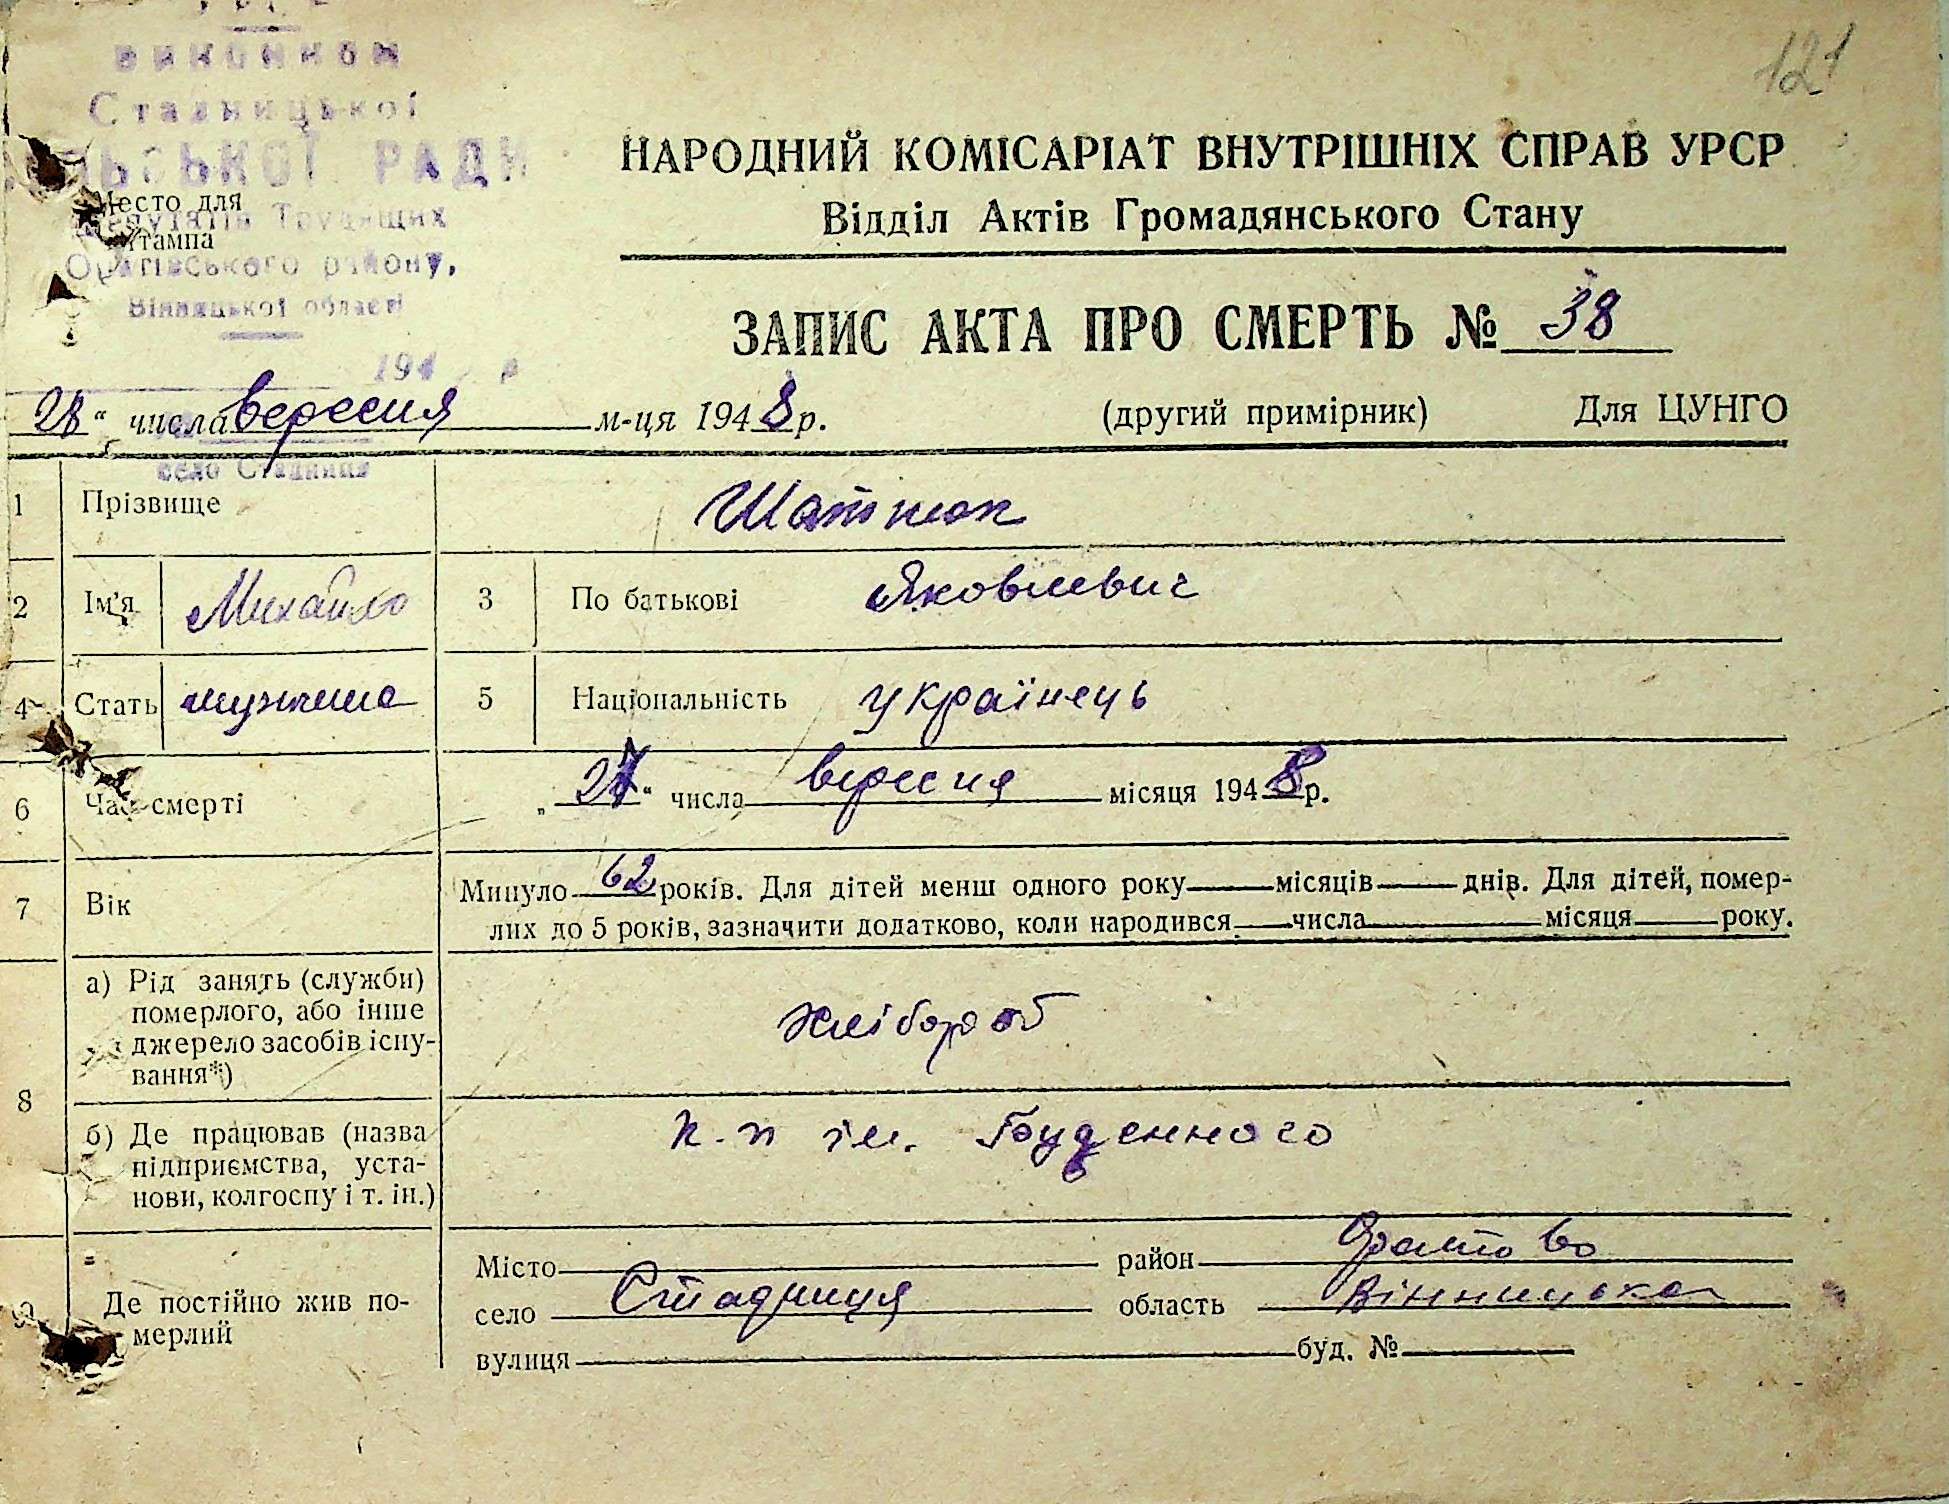 121
виконком
Стадницької
СІЛЬСЬКОЇ РАДИ
Место для
депутатів Трудящих
штампа
Оратівського району,
Вінницької області
194 р
село Стадниця
НАРОДНИЙ КОМІСАРІАТ ВНУТРІШНІХ СПРАВ УРСР
Відділ Актів Громадянського Стану
ЗАПИС АКТА ПРО СМЕРТЬ № 38
28 “ числа вересня м-ця 1948 р. (другий примірник) Для ЦУНГО
1 Прізвище Шатнюк
2 Ім'я Михайло 3 По батькові Яковлевич
4 Стать мужчина 5 Національність українець
6 Час смерті „ 27 “ числа вересня місяця 1948 р.
7 Вік Минуло 62 років. Для дітей менш одного року місяців днів. Для дітей, помер-
лих до 5 років, зазначити додатково, коли народився числа місяця року.
8 а) Рід занять (служби)
померлого, або інше
джерело засобів існу-
вання*)
хлібороб
б) Де працював (назва
підприємства, уста-
нови, колгоспу і т. ін.)
к-п ім. Буденного
9 Де постійно жив по-
мерлий
Місто район Оратово
село Стадниця область Вінницька
вулиця буд. №